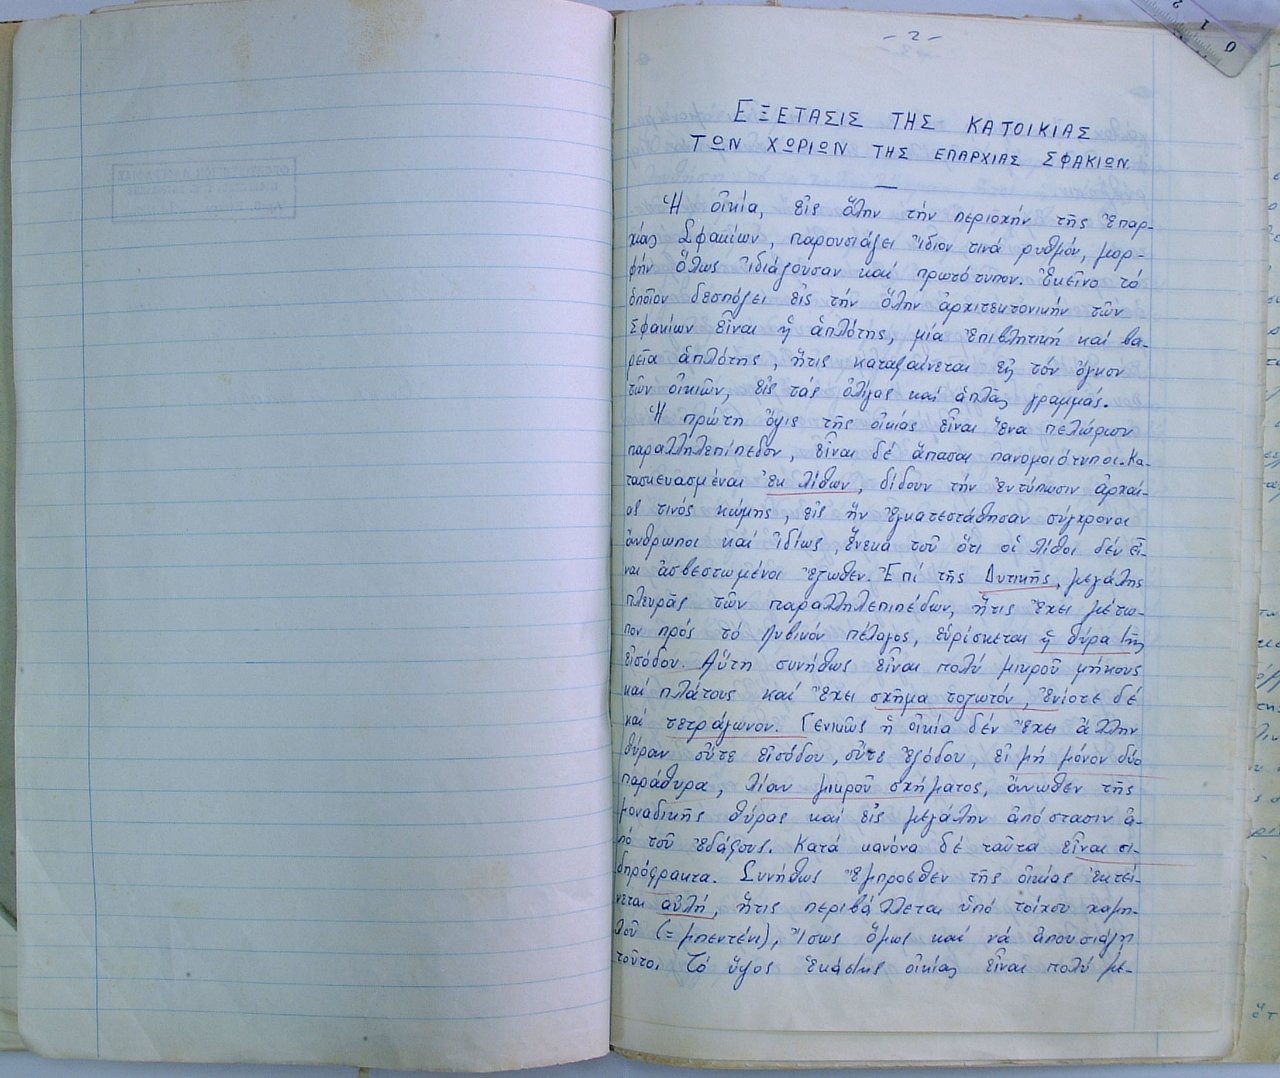 - 2 -
ΕΞΕΤΑΣΙΣ ΤΗΣ ΚΑΤΟΙΚΙΑΣ
ΤΩΝ ΧΩΡΙΩΝ ΤΗΣ ΕΠΑΡΧΙΑΣ ΣΦΑΚΙΩΝ
Ἡ οἰκία, εἰς ὅλην τήν περιοχήν τῆς ἐπαρ-
χίας Σφακίων, παρουσιάζει ἴδιον τινά ρυθμόν, μορ-
φήν ὅλως ἰδιάζουσαν καί πρωτότυπον. Ἐκεῖνο τό
ὁποῖον δεσπόζει εἰς τήν ὅλην ἀρχιτεκτονικήν τῶν
Σφακίων εἶναι ἡ ἁπλότης, μία ἐπιβλητική καί βα-
ρεῖα ἁπλότης, ἥτις καταφαίνεται εἰς τόν ὄγκον
τῶν οἰκιῶν, εἰς τάς ὀλίγας καί ἁπλᾶς γραμμάς.
Ἡ πρώτη ὄψις τῆς οἰκίας εἶναι ἕνα πελώριον
παραλληλεπίπεδον, εἶναι δέ ἅπασαι πανομοιότυποι. Κα-
τασκευασμέναι ἐκ λίθων, δίδουν τήν ἐντύπωσιν ἀρχαί-
ας τινός κώμης, εἰς ἥν ἐγκατεστάθησαν σύγχρονοι
ἄνθρωποι καί ἰδίως, ἕνεκα τοῦ ὅτι οἱ λίθοι δέν εἶ-
ναι ἀσβεστωμένοι ἔξωθεν. Ἐπί τῆς Δυτικῆς, μεγάλης
πλευρᾶς τῶν παραλληλεπιπέδων, ἥτις ἔχει μέτω-
πον πρός τό Λυβικόν πέλαγος, εὑρίσκεται ἡ θύρα τῆς
εἰσόδου. Αὕτη συνήθως εἶναι πολύ μικροῦ μήκους
καί πλάτους καί ἔχει σχῆμα τοξωτόν, ἐνίοτε δέ
καί τετράγωνον. Γενικῶς ἡ οἰκία δέν ἔχει ἄλλην
θύραν οὔτε εἰσόδου, οὔτε ἐξόδου, εἰ μή μόνον δύο
παράθυρα, λίαν μικροῦ σχήματος, ἄνωθεν τῆς
μοναδικῆς θύρας καί εἰς μεγάλην ἀπόστασιν ἀ-
πό τοῦ ἐδάφους. Κατά κανόνα δέ ταῦτα εἶναι σι-
δηρόφρακτα. Συνήθως ἔμπροσθεν τῆς οἰκίας ἐκτεί-
νεται αὐλή, ἥτις περιβάλλεται ὑπό τοίχου χαμη-
λοῦ (= μπεντένι), ἴσως ὅμως καί νά ἀπουσιάζῃ
τοῦτο. Τό ὕψος ἑκάστης οἰκίας εἶναι πολύ με-